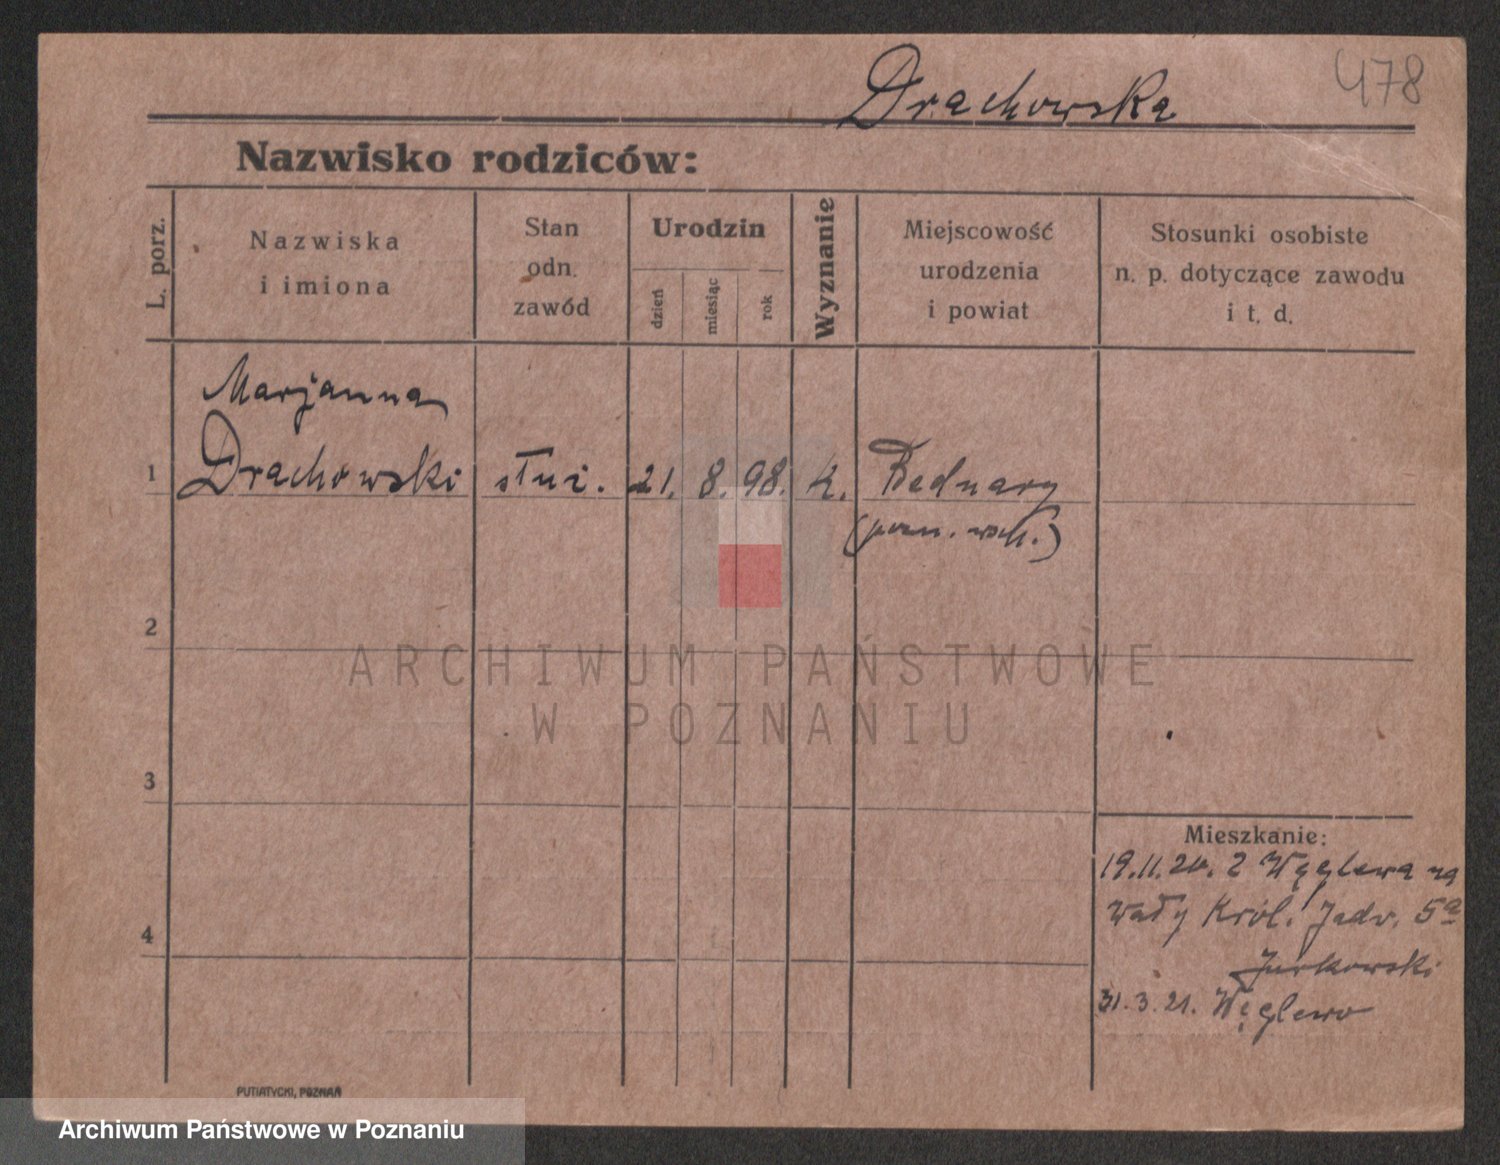 478
Drachowska
Nazwisko rodziców:
L. porz.
Nazwiska
i imiona
Stan
odn.
zawód
Urodzin
dzień
miesiąc
rok
Wyznanie
Miejscowość
urodzenia
i powiat
Stosunki osobiste
n. p. dotyczące zawodu
i t. d.
Marjanna
1 Drachowski służ. 21. 8. 98. k. Bednary
(pozn. wsch.)
2
ARCHIWUM PAŃSTWOWE
W POZNANIU
3
Mieszkanie:
19.11.20. z Węglewa na
Wały Król. Jadw. 5a
4
Jurkowski
31.3.21. Węglewo
PUTIATYCKI, POZNAŃ
Archiwum Państwowe w Poznaniu